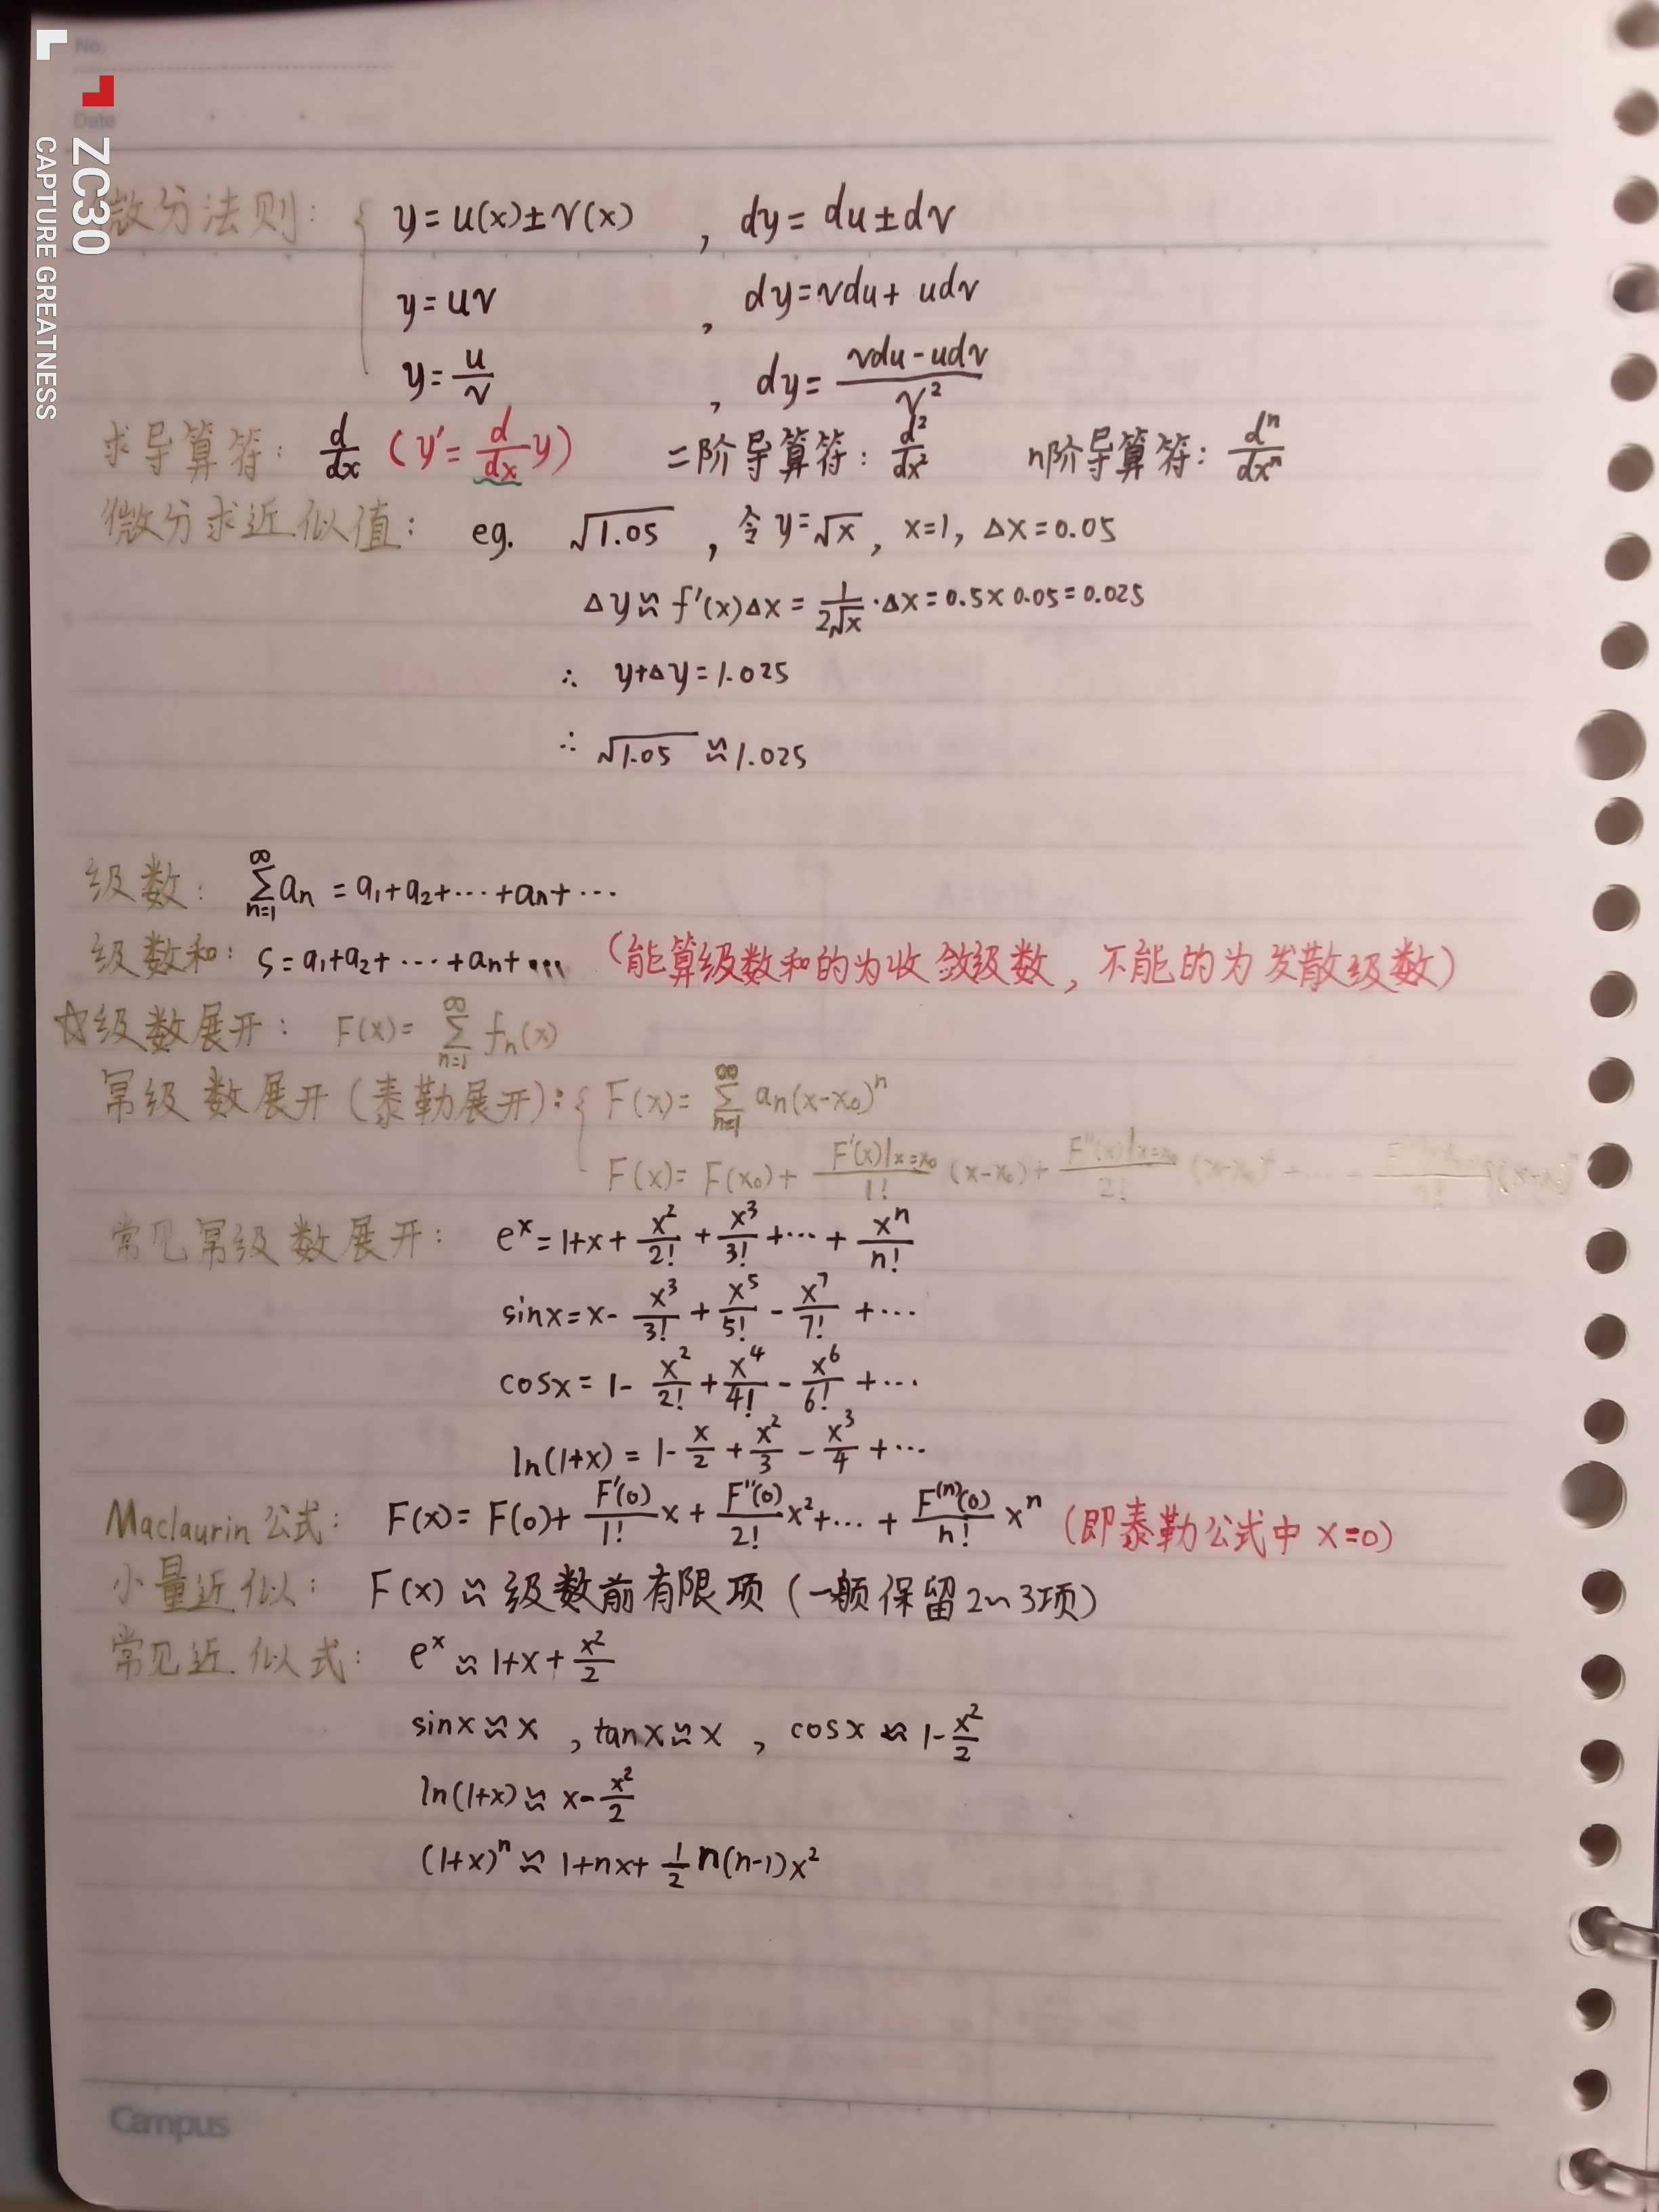 No.
Date
ZC30
CAPTURE GREATNESS
微分法则: { y=u(x)±v(x) , dy=du±dv
y=uv , dy=vdu+udv
y=u/v , dy=(vdu-udv)/v²
求导算符: d/dx (y'=d/dx y) 二阶导算符: d²/dx² n阶导算符: dⁿ/dxⁿ
微分求近似值: eg. √1.05 , 令y=√x, x=1, Δx=0.05
Δy≈f'(x)Δx=1/(2√x)·Δx=0.5×0.05=0.025
∴ y+Δy=1.025
∴ √1.05≈1.025
级数: ∑(n=1→∞) aₙ =a₁+a₂+⋯+aₙ+⋯
级数和: S=a₁+a₂+⋯+aₙ+⋯ (能算级数和的为收敛级数, 不能的为发散级数)
☆级数展开: F(x)= ∑(n=1→∞) fₙ(x)
幂级数展开(泰勒展开): { F(x)= ∑(n=1→∞) aₙ(x-x₀)ⁿ
F(x)=F(x₀)+ F'(x)|x=x₀/1! (x-x₀)+ F''(x)|x=x₀/2! (x-x₀)²+⋯
常见幂级数展开: eˣ=1+x+x²/2!+x³/3!+⋯+xⁿ/n!
sinx=x-x³/3!+x⁵/5!-x⁷/7!+⋯
cosx=1-x²/2!+x⁴/4!-x⁶/6!+⋯
ln(1+x)=1-x/2+x²/3-x³/4+⋯
Maclaurin公式: F(x)=F(0)+F'(0)/1! x+F''(0)/2! x²+⋯+F⁽ⁿ⁾(0)/n! xⁿ (即泰勒公式中x=0)
小量近似: F(x)≈级数前有限项(一般保留2~3项)
常见近似式: eˣ≈1+x+x²/2
sinx≈x , tanx≈x , cosx≈1-x²/2
ln(1+x)≈x-x²/2
(1+x)ⁿ≈1+nx+1/2 n(n-1)x²
Campus